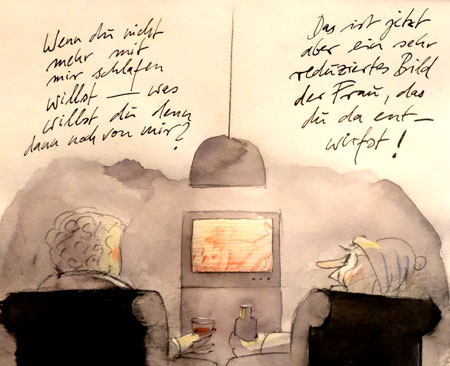 Wenn du nicht
mehr mit
mir schlafen
willst — was
willst du denn
dann noch von mir?
Das ist jetzt
aber ein sehr
reduziertes Bild
der Frau, das
du da ent-
wirfst!